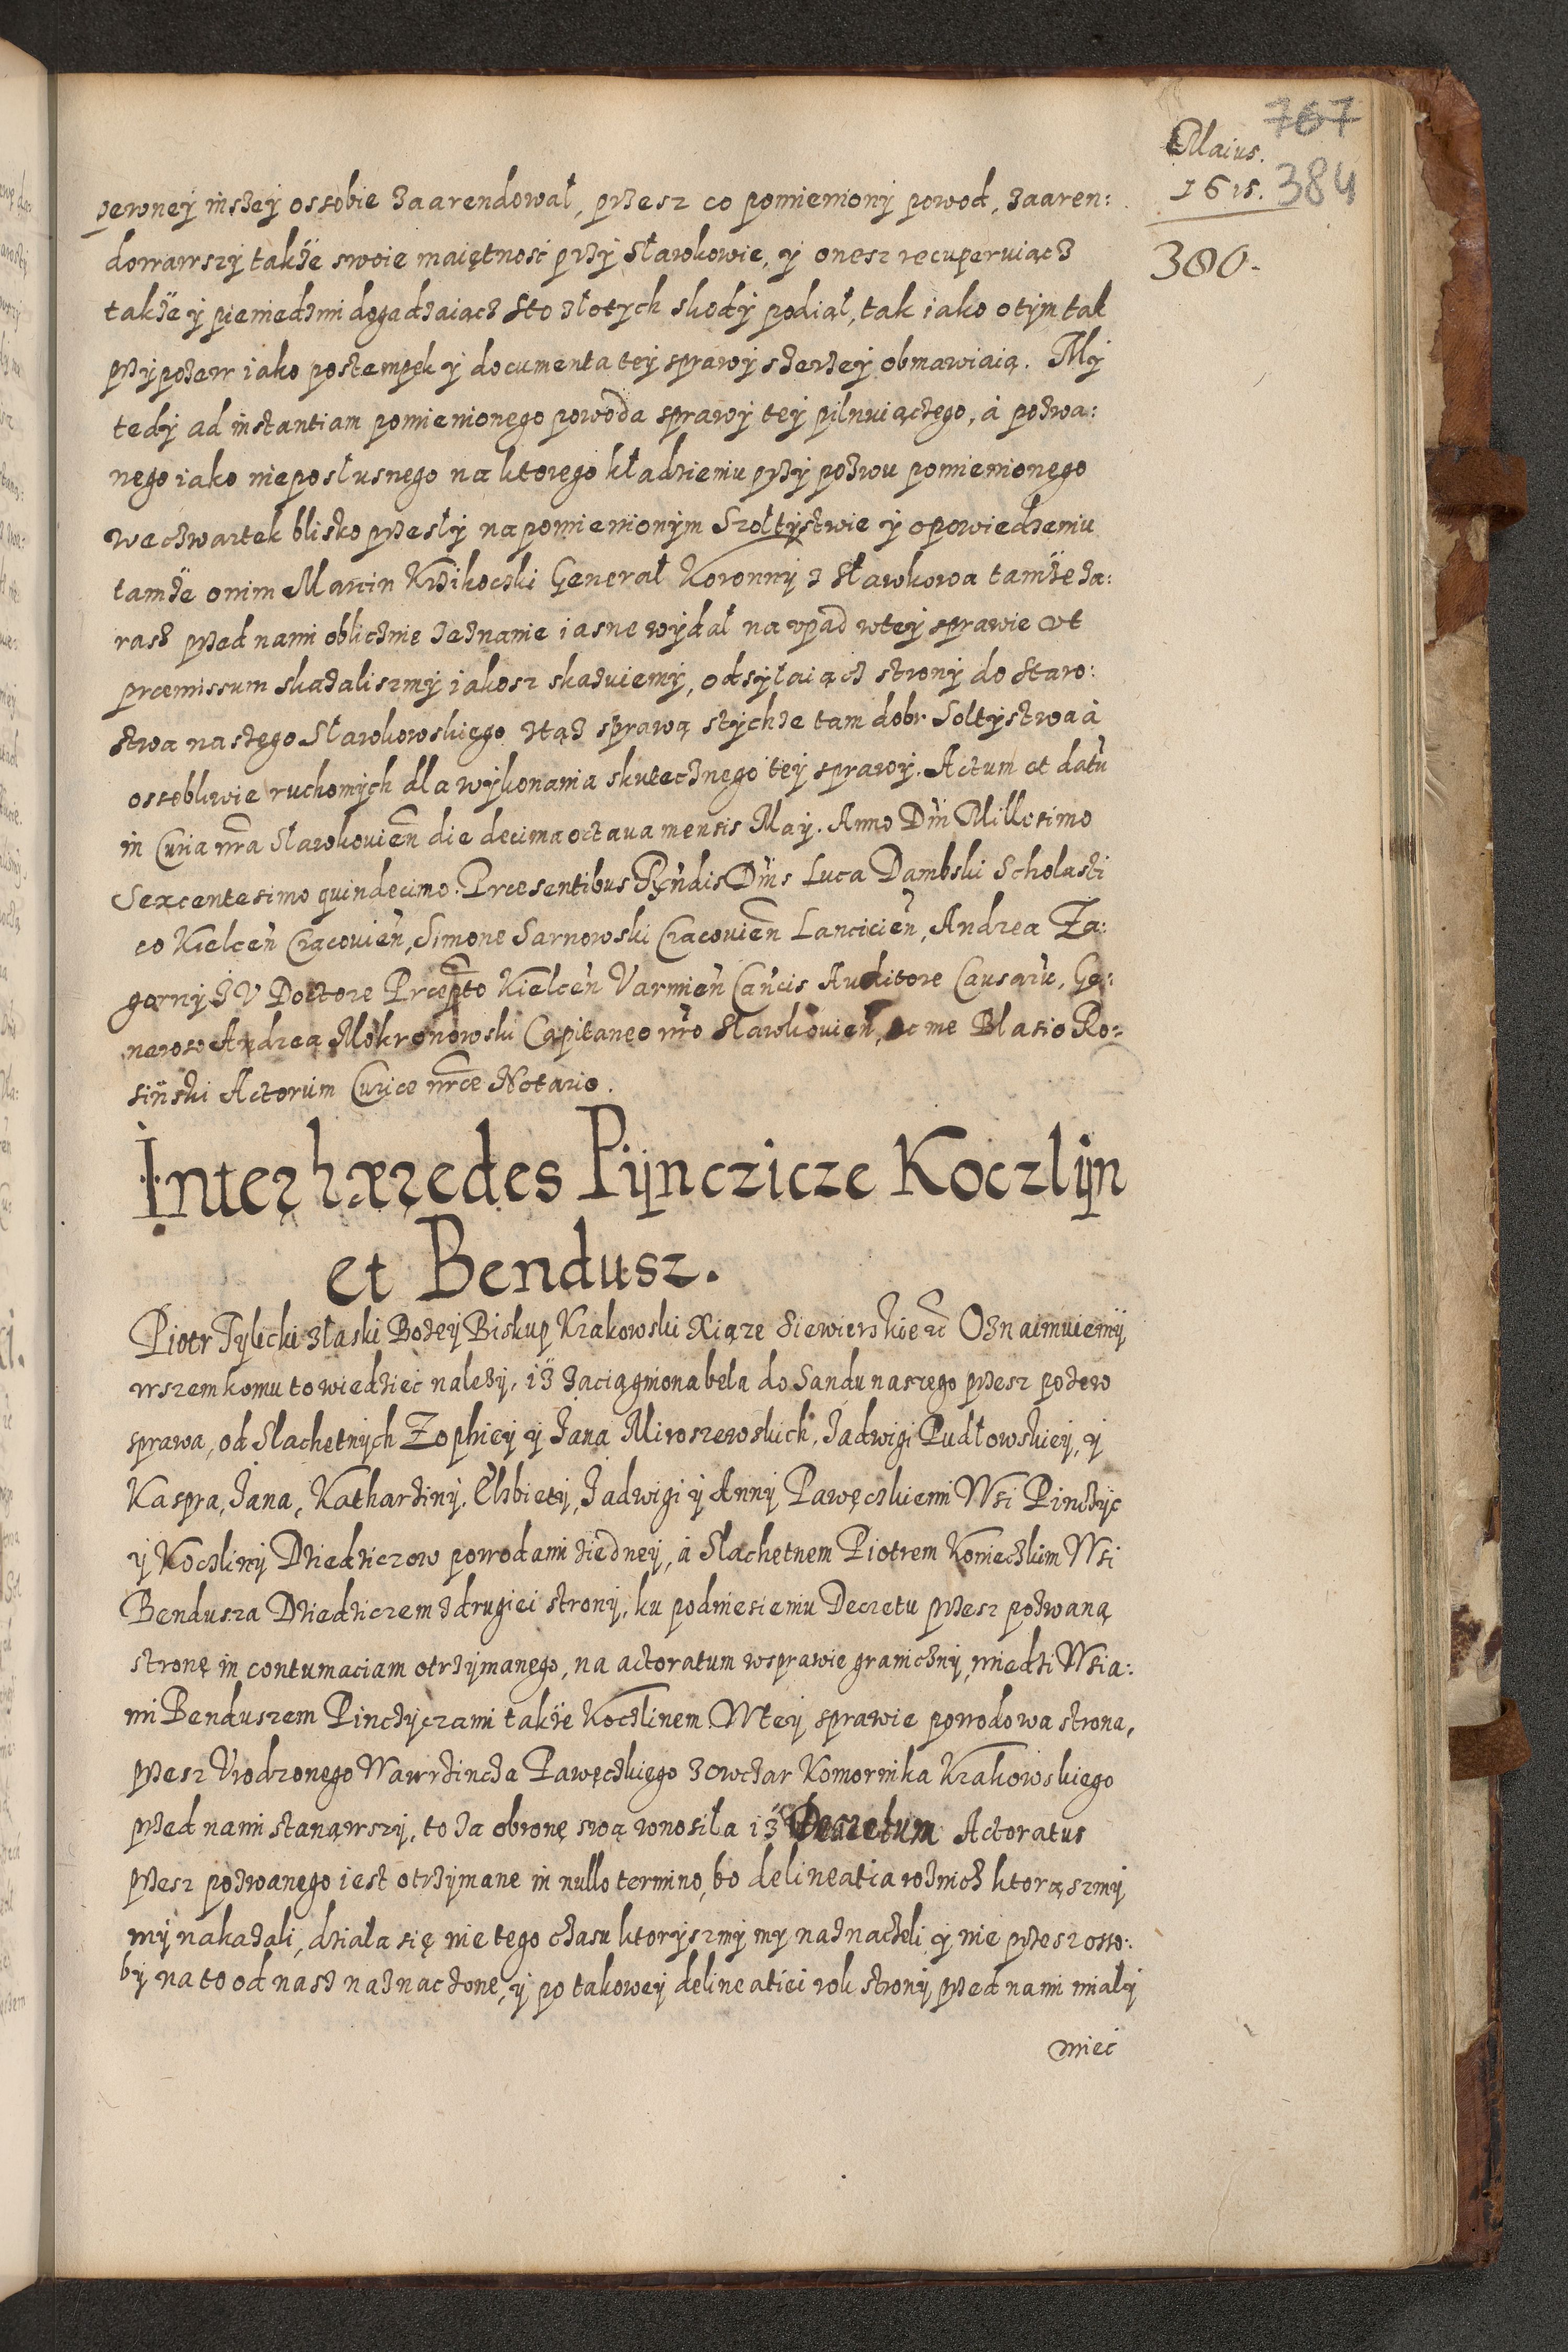 767
Maius.
1615. 384
380.
pewney inszey ossobie zaarendował, przesz co pomieniony powod, zaaren:
dowawszy także swoie maiętnosć przy Sławkowie, y onesz recuperuiącz
także y pieniedzmi dogadzaiącz sto złotych skody podiął, tak iako o tym tak
przypozew iako postempek y documenta tey sprawy szerzey obmawiaią. My
tedy ad instantiam pomienionego powoda sprawy tey pilnuiączego, á pozwa:
nego iako nieposłusnego na ktorego kładzieniu przypozwu pomienionego
we czwartek blisko przesły na pomienionym Szołtystwie y opowiedzeniu
tamże onim Marcin Krzikoczki Generał Koronny z Sławkowa tamże za:
rasz przed nami obliczmie zeznanie iasne wydał na vpad w tey sprawie vt
præmissum skazaliszmy iakosz skazuiemy, odsyłaiącz strony do Staro:
stwa naszego Sławkowskiego ztąż sprawą stychże tam dobr Soltystwa á
ossobliwie ruchomych dla wykonania skutecznego tey sprawy. Actum et datū
in Curia nrā Sławkovien̄ die decima octaua mensis May. Anno Dn̄i Millesimo
Sexcentesimo quindecimo. Præsentibus Rn̄dis Dn̄is Luca Dambski Scholasti
co Kielcen̄ Cracovien̄, Simone Sarnowski Cracovien̄ Lancicien̄, Andrea Za:
gorny I V Doctore Præpto Kielcen̄ Varmien̄ Can̄cis Auditore Causarū, Ge:
neroso Andrea Mokronowski Capitaneo nr̄o Sławkovien̄, ac me Blasio Ro:
siński Actorum Curiæ nr̄æ Notario.
Inter hæredes Pijnczicze Koczlijn
et Bendusz.
Piotr Tylicki złaski Bożey Biskup Krakowski Xiąze Siewierskie etc Oznaimuiemy
wszem komu to wiedzieć należy, iż zaciągniona beła do Sandu naszego przesz pozew
sprawa, od Slachetnych Zophiey y Jana Miroszewskich, Jadwigi Pudłowskiey, y
Kaspra, Jana, Katharziny, Elzbiety, Jadwigi y Anny Pawęczkiemi Wsi Pinczyc
y Koczliny Dziedziczow powodami ziedney, á Slachetnem Piotrem Konieczkim Wsi
Bendusza Dziedziczem z drugiei strony, ku podniesieniu Decretu przesz pozwaną
stronę in contumaciam otrzymanego, na actoratum w sprawie graniczny, miedzi Wsia:
mi Benduszem Pinczyczami także Koczlinem. W tey sprawie powodowa strona,
przesz Vrodzonego Wawrzincza Pawęczkiego z Owczar Komornika Krakowskiego
przed nami stanąwszy, to za obronę swą wnosiła iż Decretum Actoratus
przesz pozwanego iest otrzymane in nullo termino, bo delineatia roznicz ktorąszmy
my nakazali, działa się nie tego czasu ktoryszmy my naznaczeli y nie przesz osso:
by na to od nasz naznaczone, y po takowey delineatiei rok strony przed nami miały
mieć